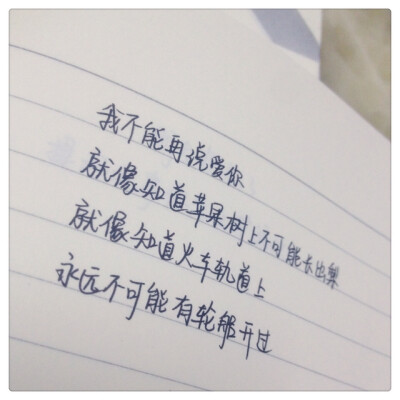 我不能再说爱你
就像知道苹果树上不可能长出梨
就像知道火车轨道上
永远不可能有轮船开过